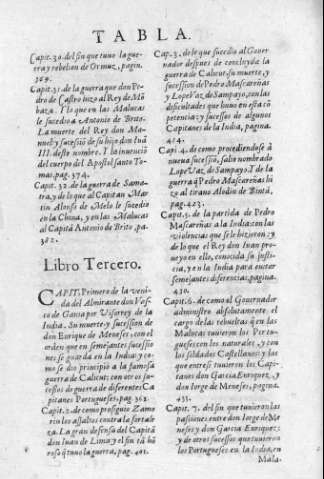 TABLA.
Capit. 30. del fin que tuuo la gue
rra y rebelion de Ormuz, pagin.
369.
Capit. 31. de la guerra que don Pe
dro de Castro hizo al Rey de Mũ
baza. I lo que en las Malucas
le sucedio a Antonio de Brito.
La muerte del Rey don Ma
nuel y sucesiõ de su hijo don Iuã
III. deste nombre. I la inuenciõ
del cuerpo del Apostol santo To
mas. pag. 374.
Capit. 32. de la guerra de Sama
tra, y de lo que al Capitan Mar
tin Alonso de Melo le sucedio
en la China, y en las Malucas
al Capitã Antonio de Brito, pa.
382.
Libro Tercero.
CAPIT. Primero de la veni
da del Almirante don Vas
co de Gama por Visorey de la
India. Su muerte y sucession de
don Enrique de Meneses, con el
orden que en semejantes sucessio
nes se guarda en la India y co
mo se dio principio a la famosa
guerra de Calicut; con otros su
cessos de guerra de diferentes Ca
pitanes Portugueses, pag. 391.
Capit. 2. de como prosiguio Zamo
rin los assaltos contra la fortale
za. La gran defensa del Capitã
don Iuan de Lima y el fin tã hõ
roso q̃ tuuo la guerra, pag. 401.
Cap. 3. de lo que sucedio al Gouer
nador despues de concluyda la
guerra de Calicut, su muerte, y
sucession de Pedro Mascareñas
y Lope Vaz de Sampayo, con las
dificultades que huuo en esta cõ
petencia: y sucessos de algunos
Capitanes de la India, pagina.
414.
Capi. 4. de como procediendose à
nueua sucessiõ, salio nombrado
Lope Vaz, de Sampayo. I de la
guerra q̃ Pedro Mascareñas hi
zo al tirano Alodin de Bintã,
pag. 423.
Capit. 5. de la partida de Pedro
Mascareñas a la India: con las
violencias que se le hizieron: y
de lo que el Rey don Iuan pro
ueyo en ello, conocida su justi
cia, y en la India para euitar
semejantes diferencias. pagina.
430.
Capit. 6. de como el Gouernador
administro absolutamente el
cargo de las rebueltas q̃ en las
Malucas tuuieron los Portu
gueses con los naturales, y con
los soldados Castellanos: y las
que entre si tuuieron los Capi
tanes don Garcia Enriquez, y
don Iorge de Meneses, pagina.
433.
Capit. 7. del fin que tuuieron las
passiones entre don Iorge de Me
neses y don Garcia Enriquez:
y de otros sucessos que tuuieron
los Portugueses en la India, en
Mala-